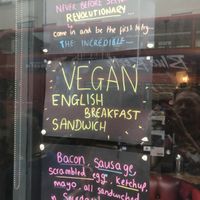 NEVER BEFORE SEEN
REVOLUTIONARY...
come in and be the first to try
THE INCREDIBLE...
VEGAN
ENGLISH
BREAKFAST
SANDWICH
Bacon, Sausage,
scrambled egg, Ketchup,
mayo, all sandwiched